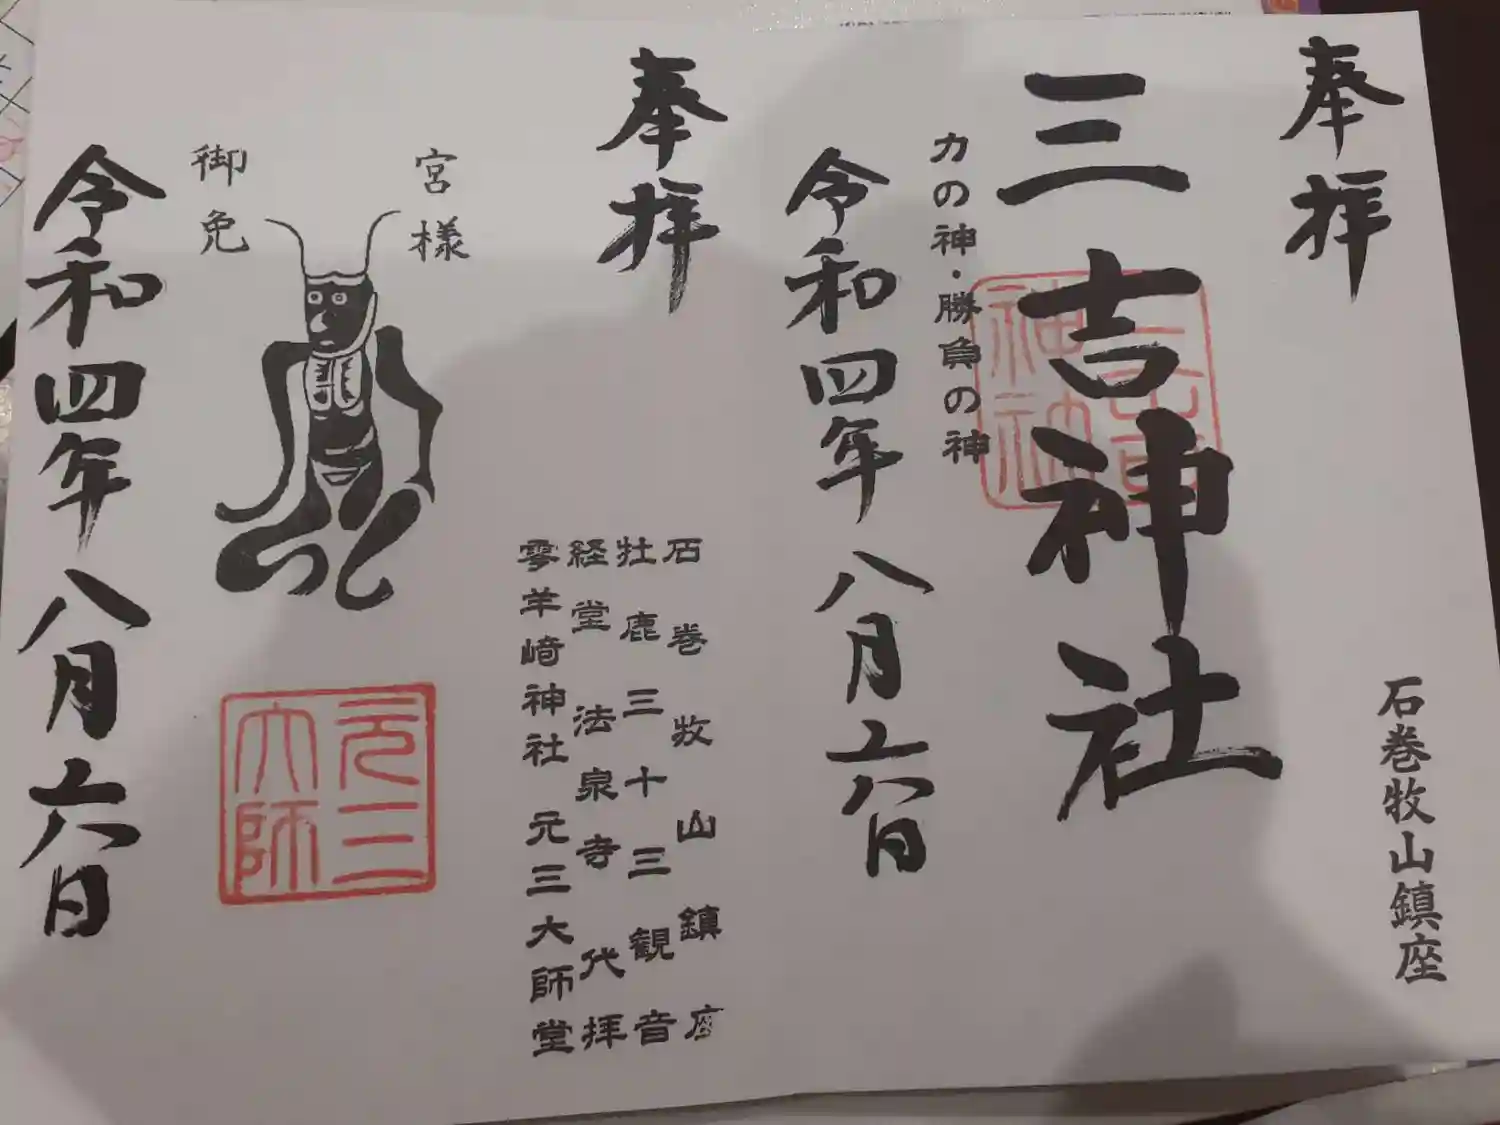 奉拝
石巻牧山鎮座
三吉神社
三吉神社
力の神・勝負の神
令和四年八月六日
奉拝
石巻牧山鎮座
牡鹿三十三観音
経堂 法泉寺 代拝
零羊崎神社 元三大師堂
宮様
御免
元三大師
令和四年八月六日